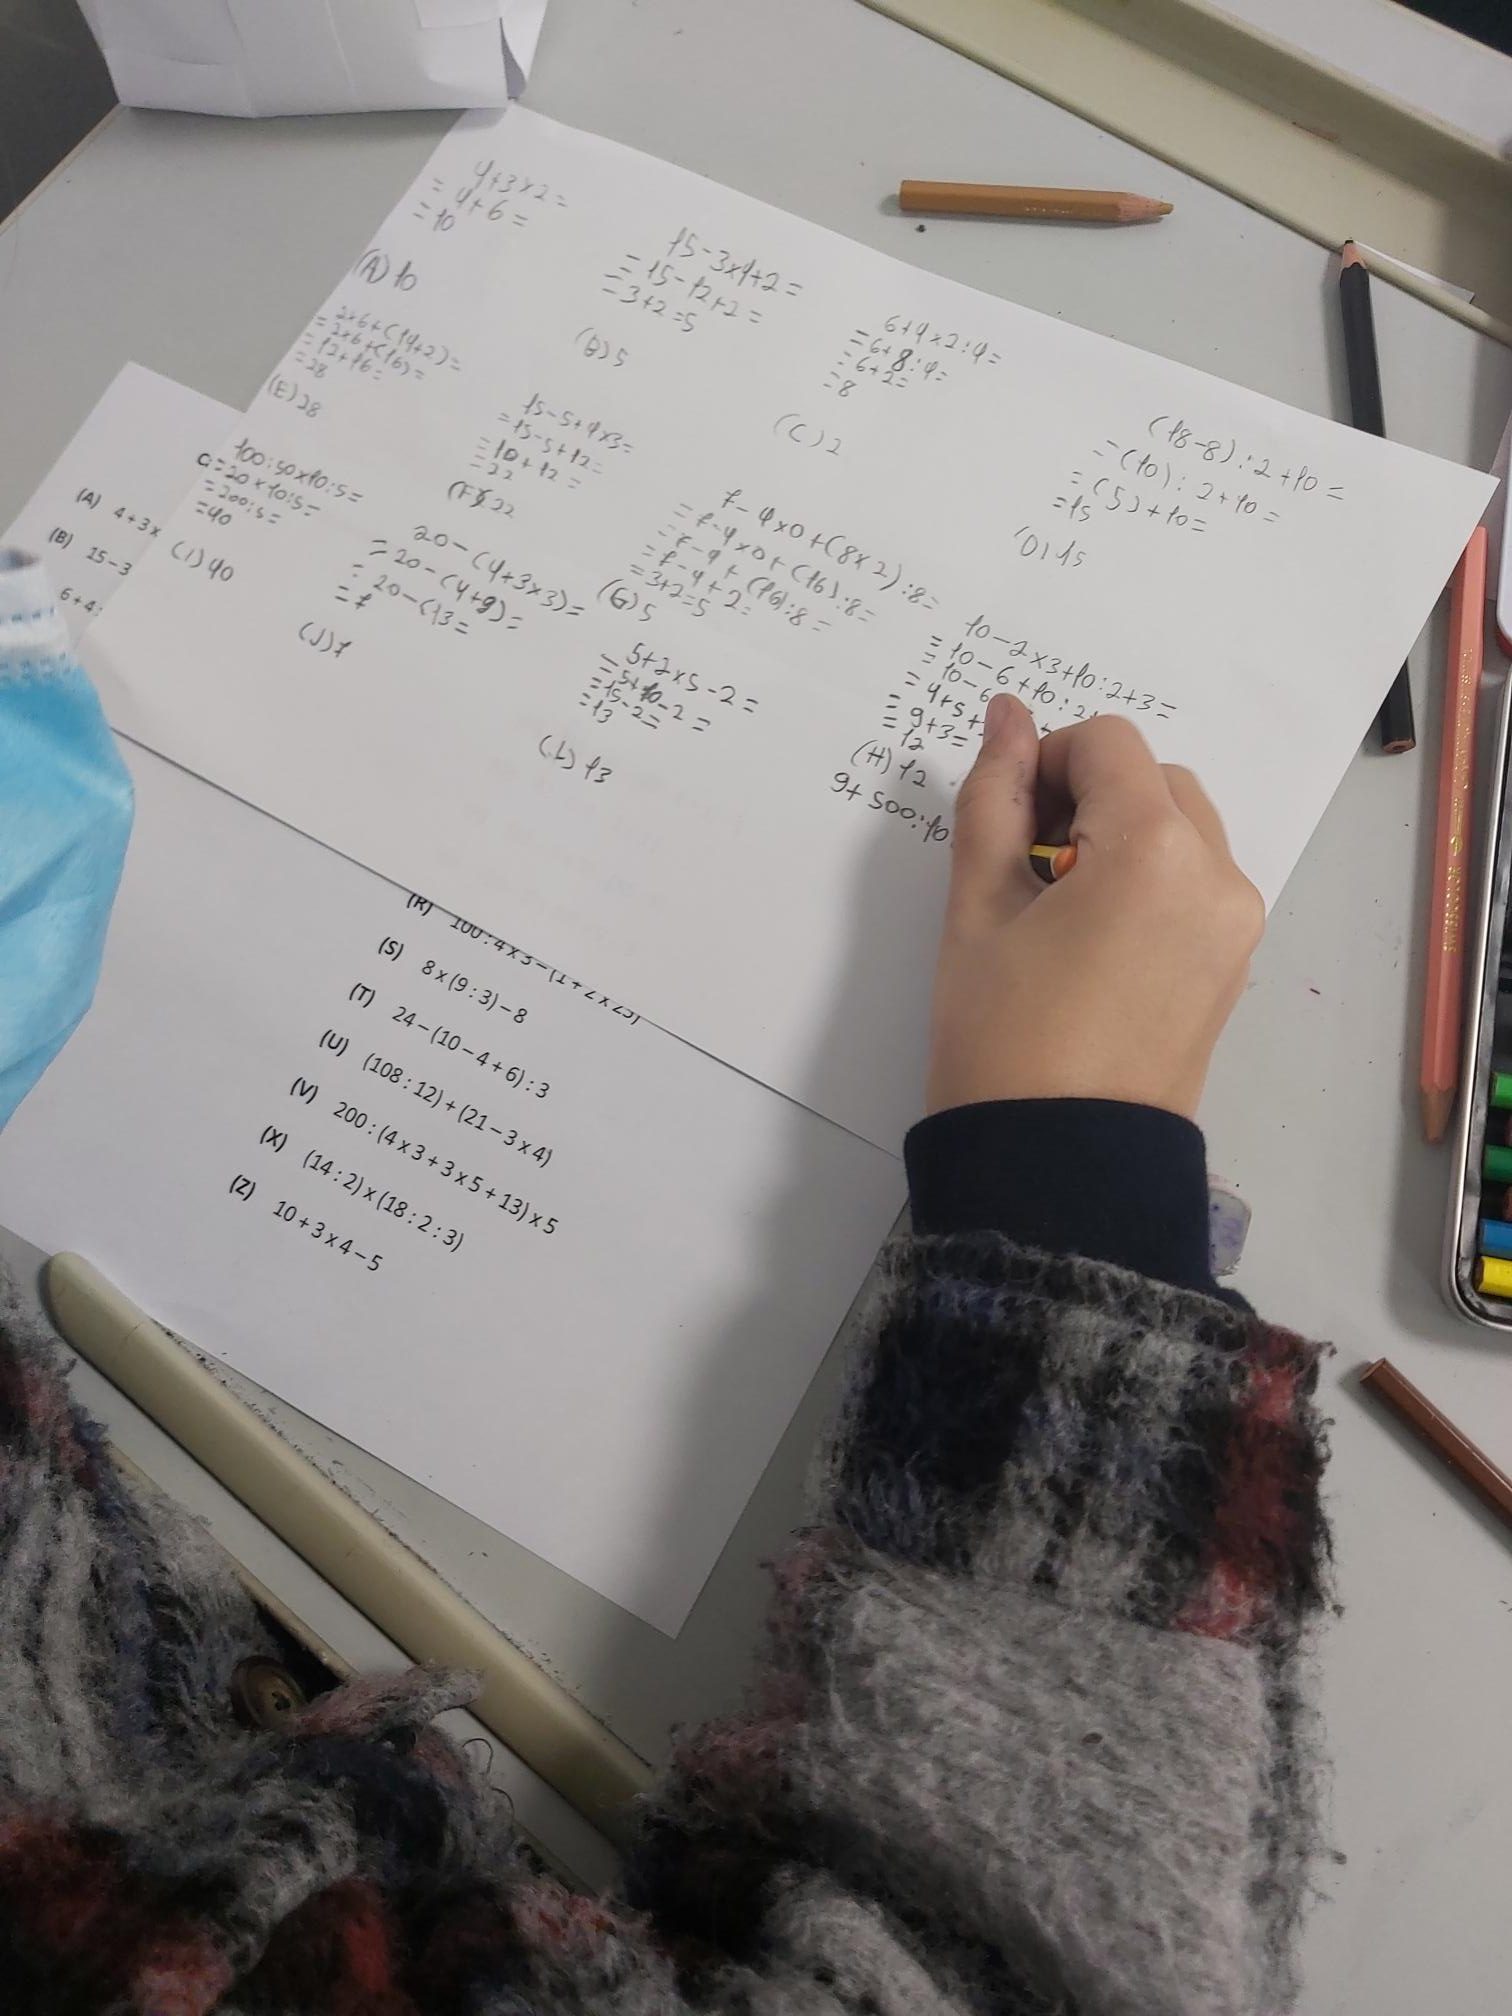 4+3×2=
= 4+6=
= 10
(A) 10
15-3×4+2=
= 15-12+2=
= 3+2=5
(B) 5
6+4×2:4=
= 6+8:4=
= 6+2=
= 8
(C) 2
(18-8):2+10=
= (10):2+10=
= (5)+10=
= 15
(D) 15
2×6+(14+2)=
= 2×6+(16)=
= 12+16=
= 28
(E) 28
15-5+4×3=
= 15-5+12=
= 10+12=
= 22
(F) 22
7-4×0+(8×2):8=
= 7-4×0+(16):8=
= 7-4+(16):8=
= 7-4+2=
= 3+2=5
(G) 5
10-2×3+10:2+3=
= 10-6+10:2
= 10-6
= 4+5+
= 9+3=
= 12
(H) 12
100:50×10:5=
= 20×10:5=
= 200:5=
= 40
(I) 40
20-(4+3×3)=
= 20-(4+9)=
= 20-(13=
= 7
(J) 7
5+2×5-2=
= 5+10-2=
= 15-2=
= 13
(L) 13
9+500:10
(A) 4+3x
(B) 15-3
6+4:
(R) 100:4x5-(1+2x25)
(S) 8x(9:3)-8
(T) 24-(10-4+6):3
(U) (108:12)+(21-3x4)
(V) 200:(4x3+3x5+13)x5
(X) (14:2)x(18:2:3)
(Z) 10+3x4-5